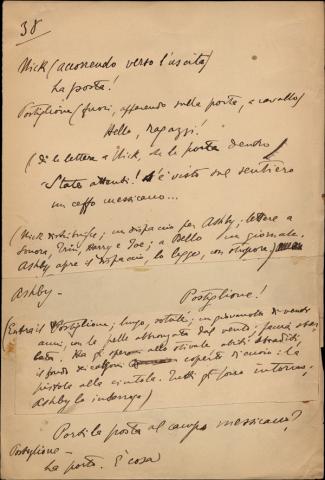 38
Nick (accorrendo verso l'uscita)
La posta!
Postiglione (fuori, apparendo sulla porta, a cavallo)
Hello, ragazzi!
(dà le lettere a Nick, che le porta dentro)
State attenti! S'è visto sul sentiero
un ceffo messicano...
(Nick distribuisce; un dispaccio per Ashby; lettere a
Sonora, Trin, Harry e Joe; a Bello un giornale.
Ashby apre il dispaccio, lo legge, con stupore)
Ashby -
Postiglione!
(Entra il Postiglione;
anni, con la pelle abbronzata dal vento;
Ha gli alle stivale
il fondo dei calzoni coperti di cuoio: la
pistola alla cintola. Tutti gli sono intorno,
Ashby lo interroga)
Porti la posta al campo messicano?
Postiglione -
La porto. E cosa